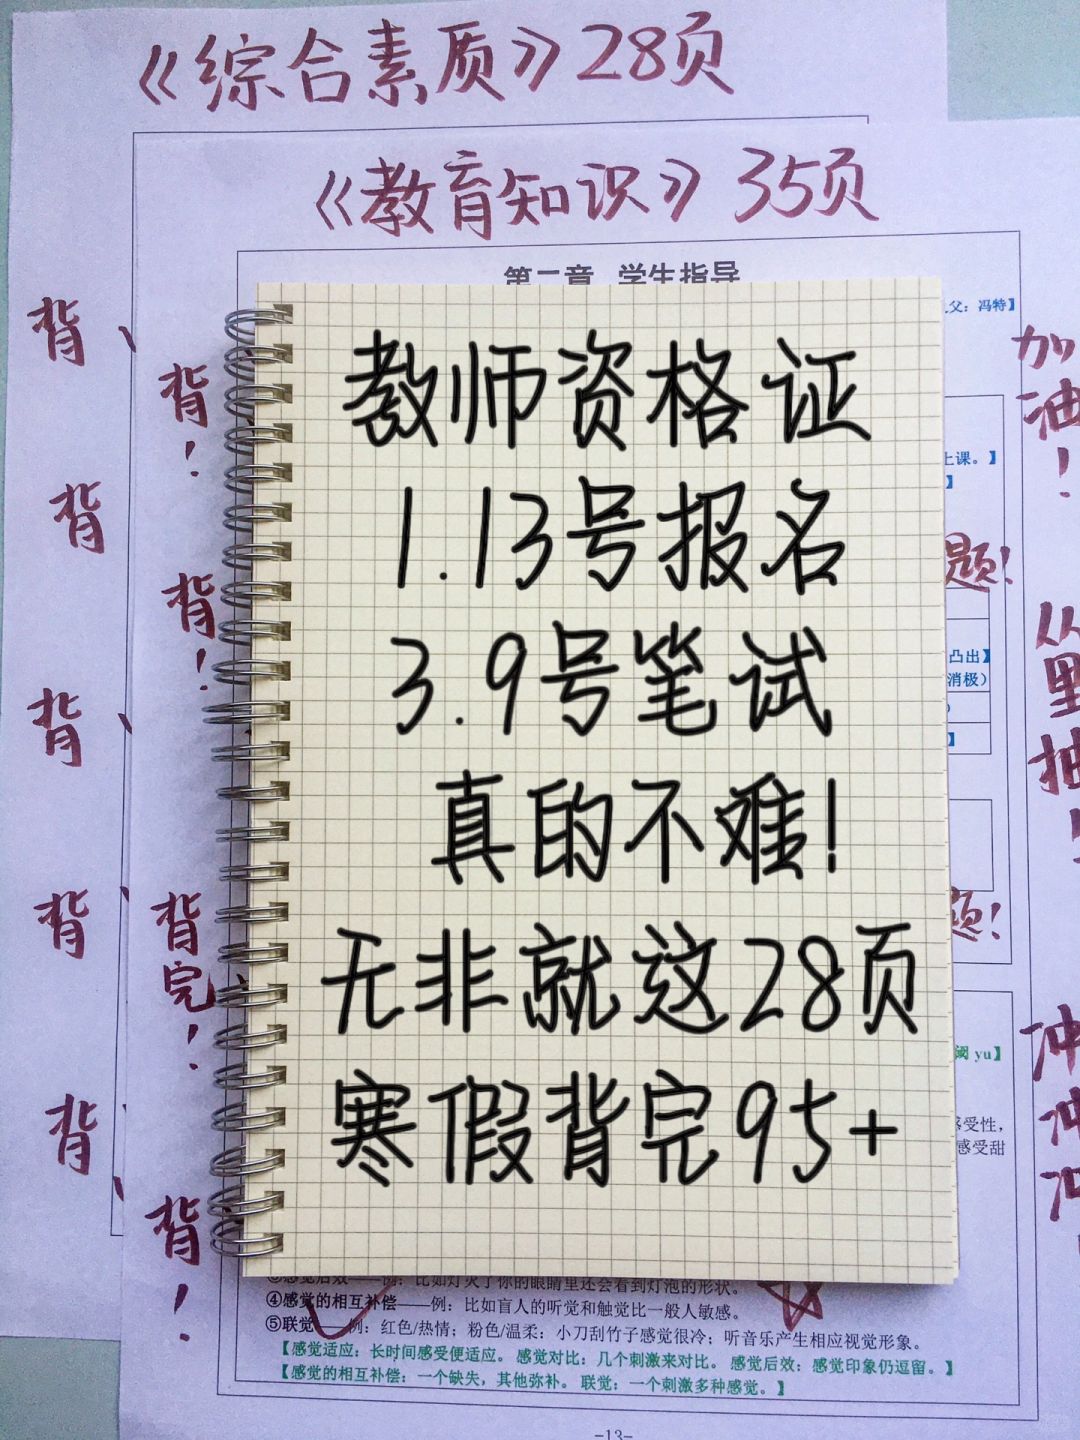 《综合素质》28页
《教育知识》35页
第二章 学生指导
父：冯特】
教师资格证
1.13号报名
3.9号笔试
真的不难！
无非就这28页
寒假背完95+
背
背！
背
背！
背
背
背完！
背
背！
加油！
上课。】
】
题！
凸出】
消极）
】
从
里
抽
题！
阈 yu】
感受性，
感受甜
冲
冲
冲
③感觉后效——例：比如灯灭了你的眼睛里还会看到灯泡的形状。
④感觉的相互补偿——例：比如盲人的听觉和触觉比一般人敏感。
⑤联觉——例：红色/热情；粉色/温柔；小刀刮竹子感觉很冷；听音乐产生相应视觉形象。
【感觉适应：长时间感受便适应。感觉对比：几个刺激来对比。感觉后效：感觉印象仍逗留。】
【感觉的相互补偿：一个缺失，其他弥补。联觉：一个刺激多种感觉。】
-13-